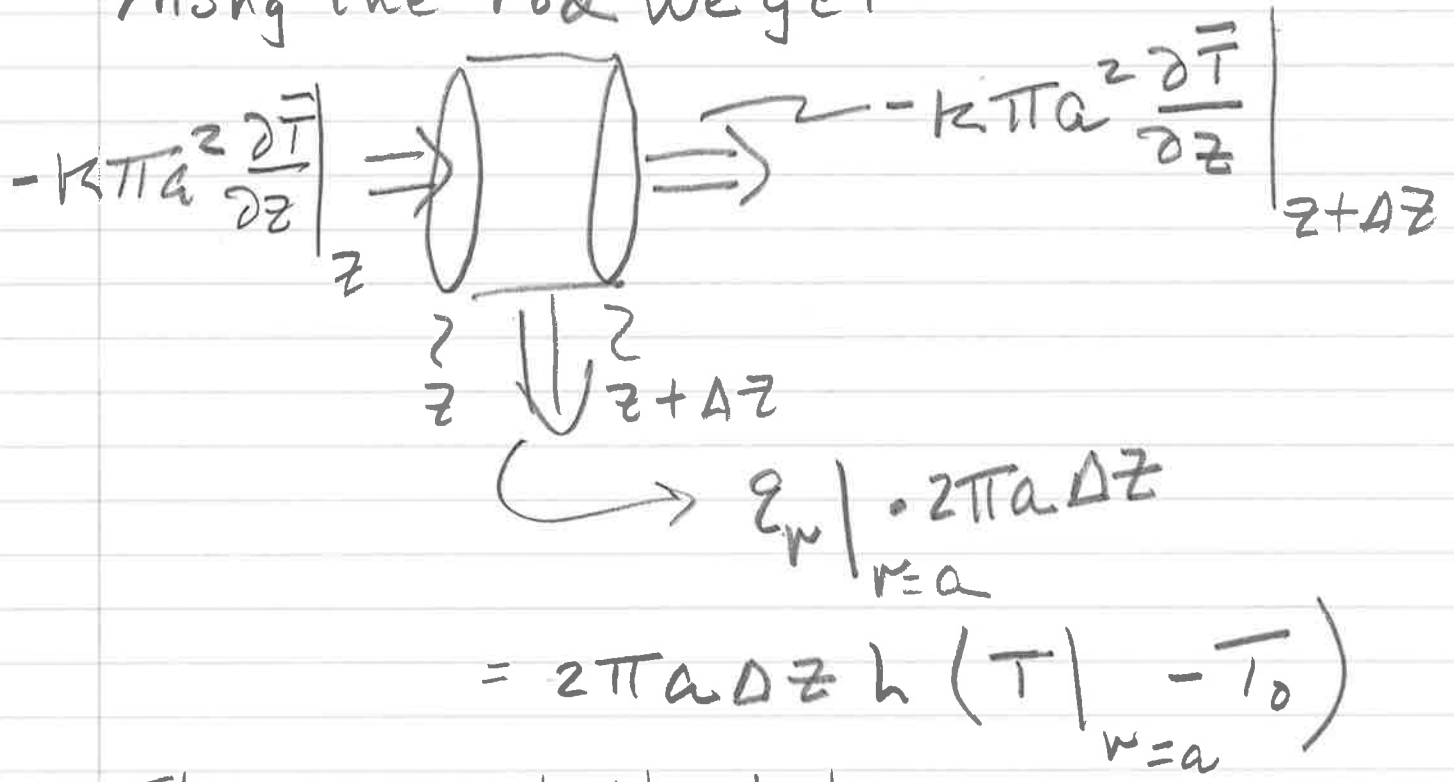 Along the rod we get
-kπa² ∂T̄/∂z |_z ⇒ ⇒ -kπa² ∂T̄/∂z |_{z+Δz}
z z+Δz
q_r|_{r=a} · 2πaΔz
= 2πaΔz h (T|_{r=a} - T₀)